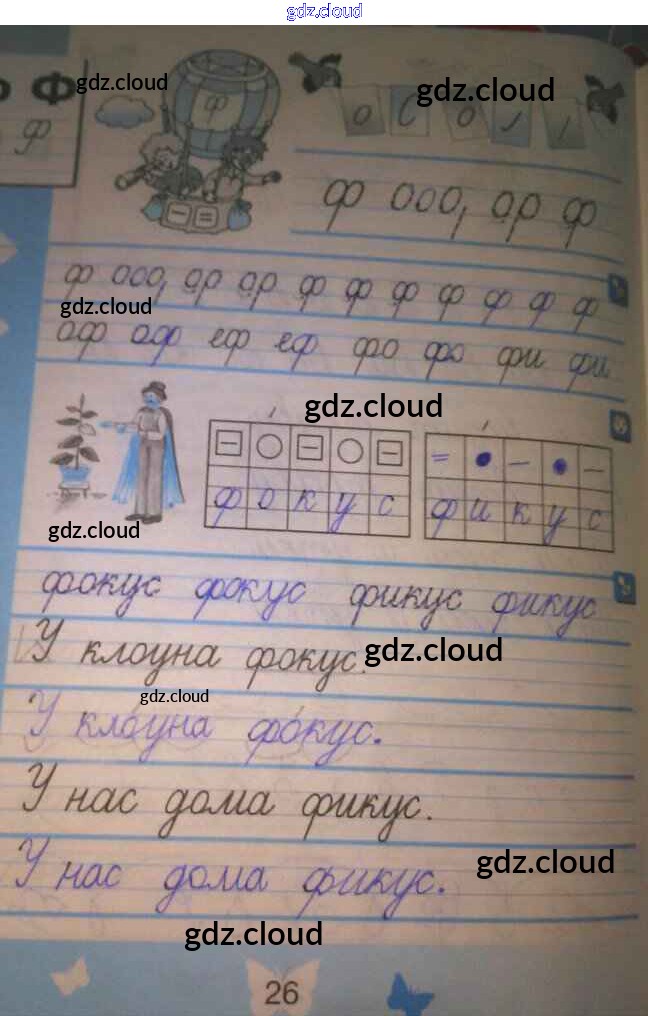 gdz.cloud
Ф gdz.cloud
ф ф gdz.cloud
ф ооо, ор ф
ф ооо, ор ор ф ф ф ф ф ф ф
gdz.cloud
оф оф еф еф фо фо фи фи
gdz.cloud
− ○ − ○ − = • − • −
ф о к у с ф и к у с
gdz.cloud
фокус фокус фикус фикус
У клоуна фокус. gdz.cloud
gdz.cloud
У кло́уна фо́кус.
У нас дома фикус.
У нас дома фикус. gdz.cloud
gdz.cloud
26